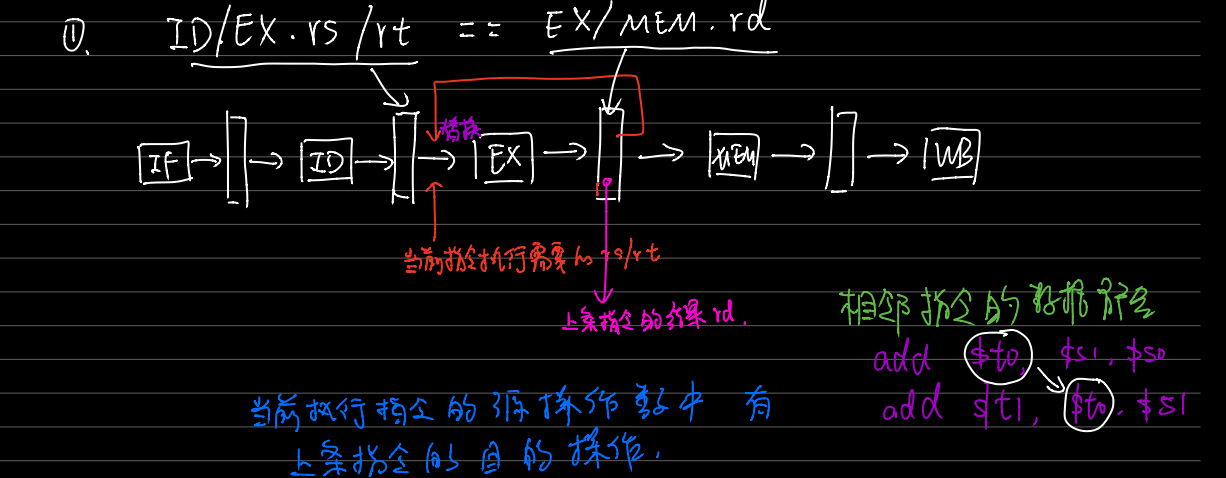 ①. ID/EX.rs/rt == EX/MEM.rd
替换
IF ID EX MEM WB
当前指令执行需要的 rs/rt
上条指令的结果 rd.
相邻指令的数据冒险
add $t0, $s1, $s0
add $t1, $t0, $s1
当前执行指令的源操作数中 有
上条指令的目的操作.